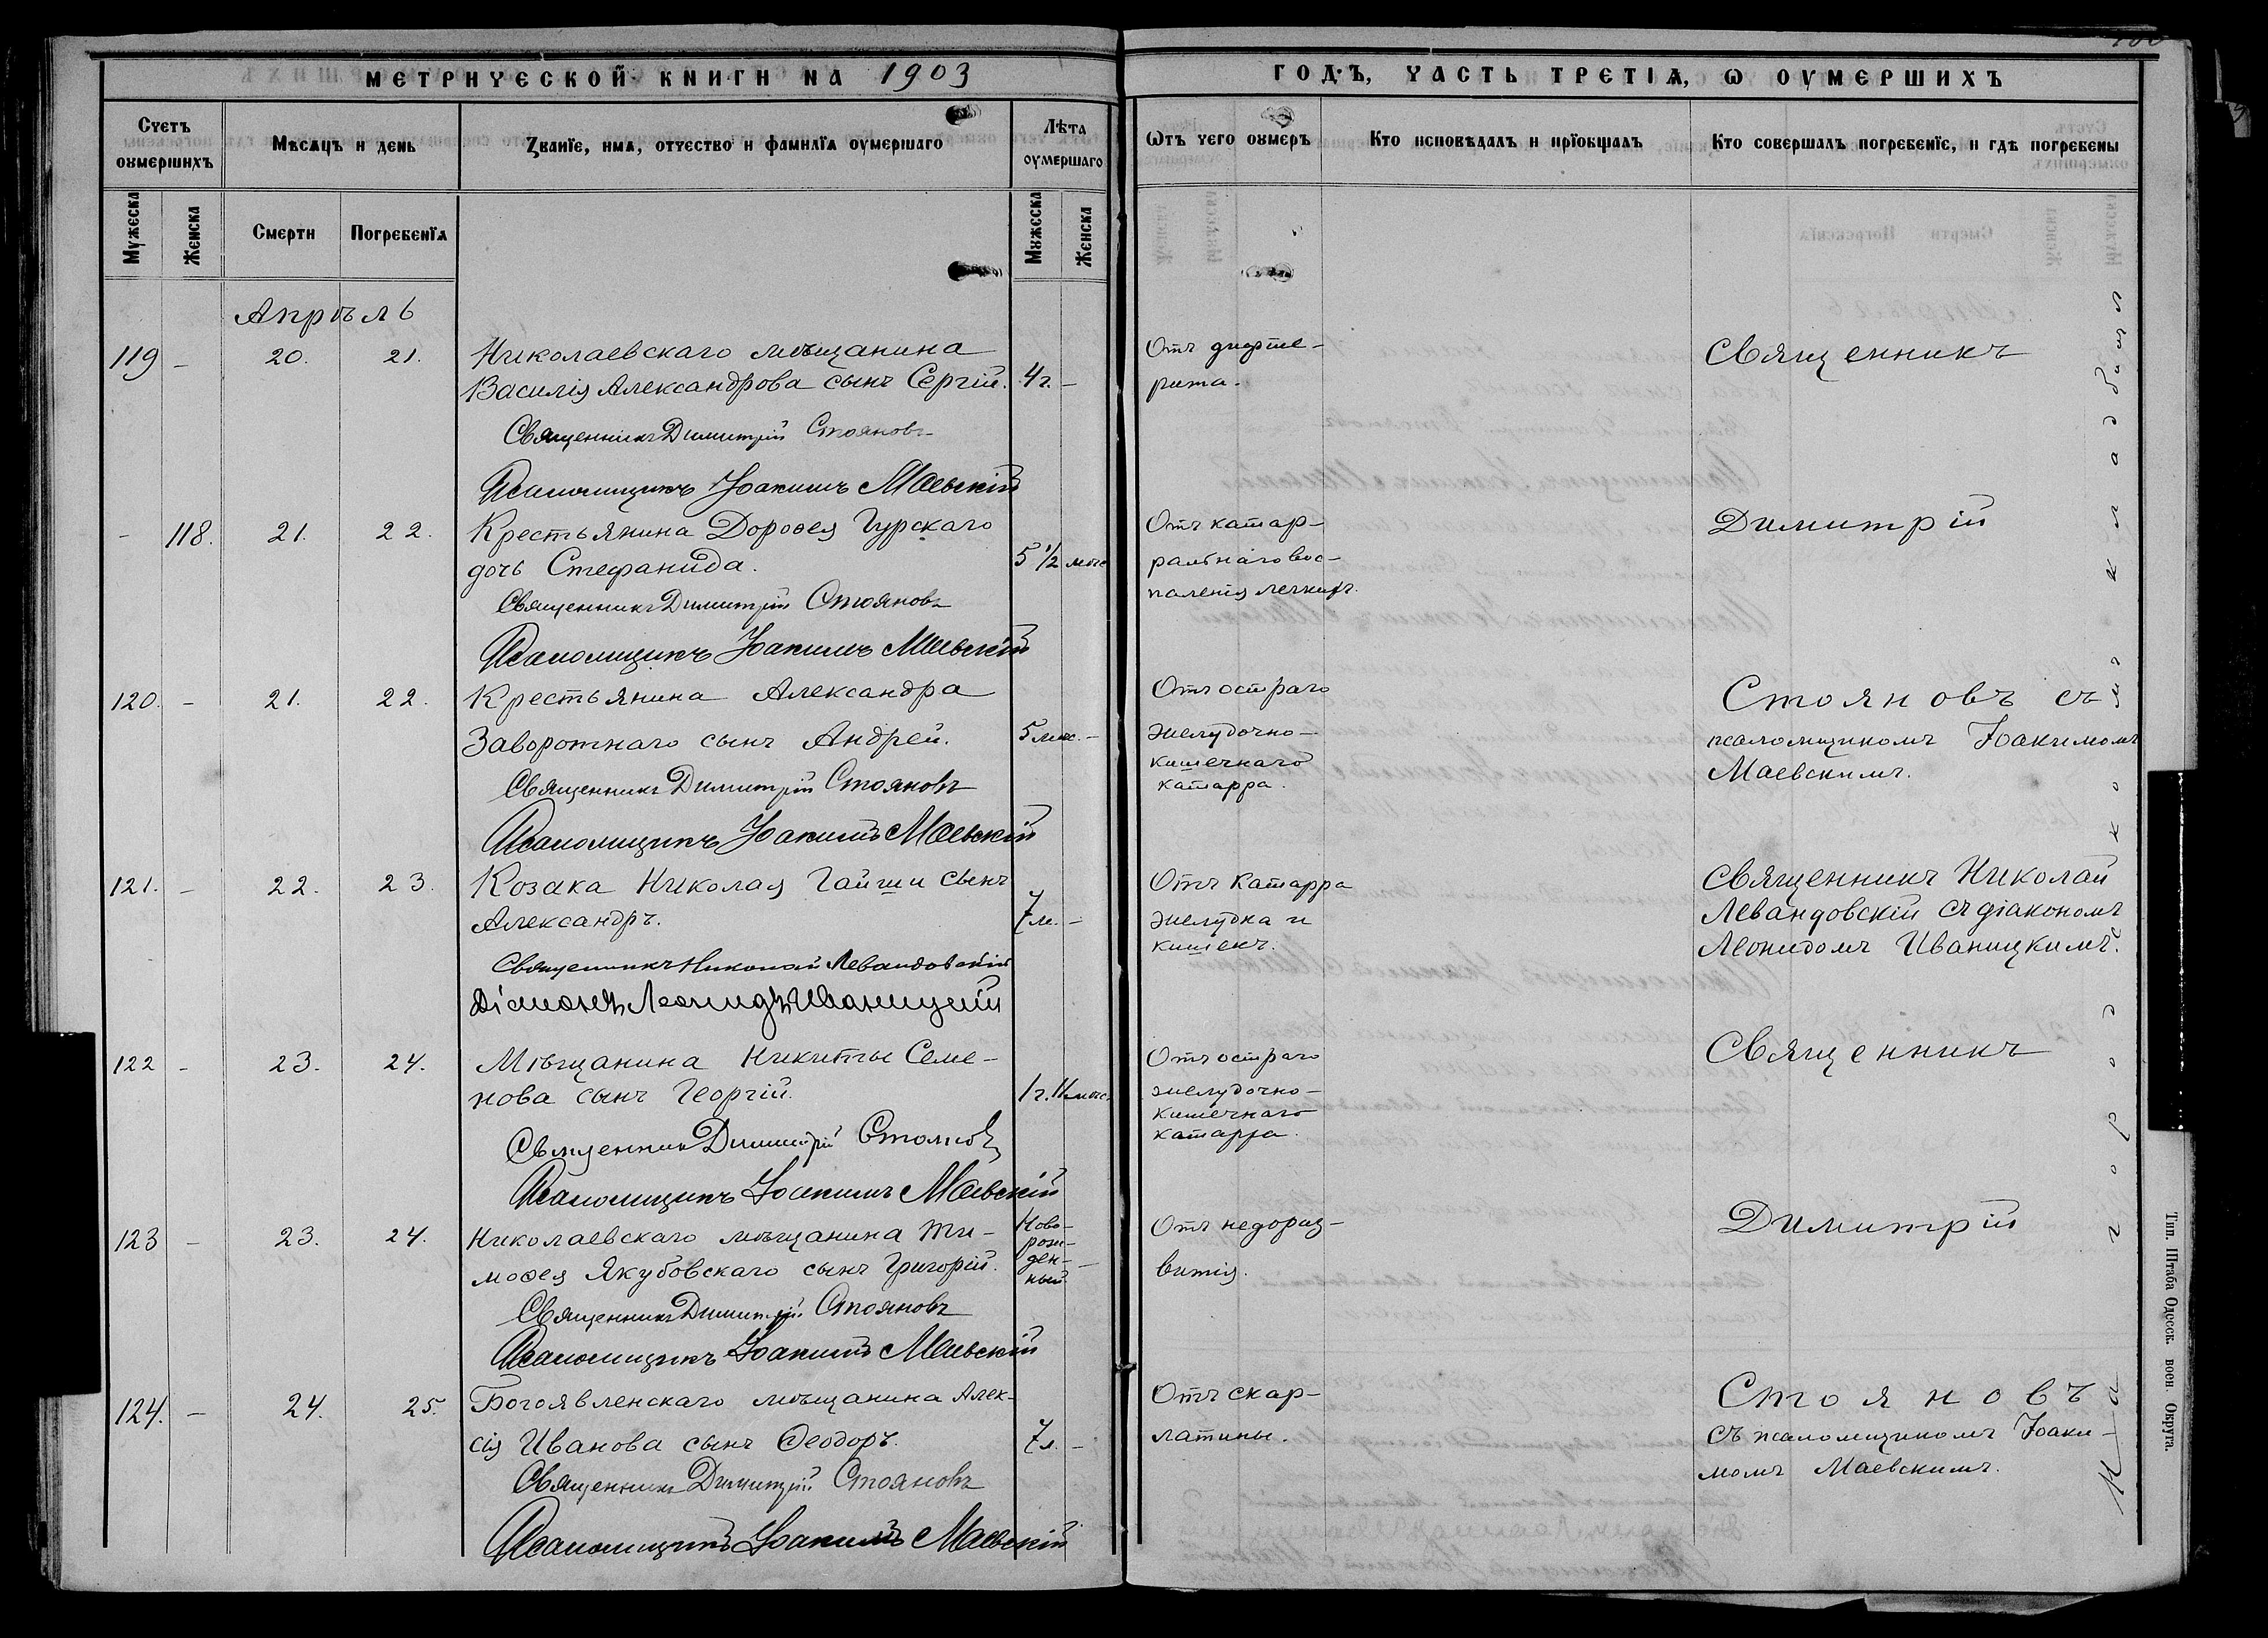 МЕТРИЧЕСКОЙ КНИГИ НА 1903
ГОДЪ, ЧАСТЬ ТРЕТІѦ, Ѡ ОУМЕРШИХЪ
Счетъ оумершихъ
Мѣсяцъ и день
Званїе, имѧ, отчество и фамилїѧ оумершаго
Лѣта оумершаго
Ѿтъ чего оумеръ
Кто исповѣдалъ и прїобщалъ
Кто совершалъ погребенїе, и гдѣ погребены
Мужеска
Женска
Смерти
Погребенїѧ
Мужеска
Женска
Апрѣль
119 - 20. 21. Николаевскаго мѣщанина
Василія Александрова сынъ Сергій. 4 г. -
Отъ дифте-
рита.
Священникъ
Священникъ Димитрій Стояновъ
Псаломщикъ Іоакимъ Маевскій
- 118. 21. 22. Крестьянина Дороѳея Гурскаго
дочь Стефанида. 5 1/2 мѣс
Отъ катар-
ральнаго вос-
паленія легкихъ.
Димитрій
Священникъ Димитрій Стояновъ
Псаломщикъ Іоакимъ Маевскій
120. - 21. 22. Крестьянина Александра
Заворотнаго сынъ Андрей. 5 мѣс. -
Отъ остраго
желудочно-
кишечнаго
катарра.
Стояновъ съ
псаломщикомъ Іоакимомъ
Маевскимъ.
Священникъ Димитрій Стояновъ
Псаломщикъ Іоакимъ Маевскій
121. - 22. 23. Козака Николая Гайши сынъ
Александръ. 7 м. -
Отъ катарра
желудка и
кишекъ.
Священникъ Николай
Левандовскій съ діакономъ
Леонидомъ Иваницкимъ.
Священникъ Николай Левандовскій
Діаконъ Леонидъ Иваницкій
122 - 23. 24. Мѣщанина Никиты Семе-
нова сынъ Георгій. 1 г. 11 мѣс.
Отъ остраго
желудочно-
кишечнаго
катарра.
Священникъ
Священникъ Димитрій Стояновъ
Псаломщикъ Іоакимъ Маевскій
123 - 23. 24. Николаевскаго мѣщанина Ти-
моѳея Якубовскаго сынъ Григорій.
Ново-
рож-
ден-
ный -
Отъ недораз-
витія.
Димитрій
Священникъ Димитрій Стояновъ
Псаломщикъ Іоакимъ Маевскій
124. - 24. 25. Богоявленскаго мѣщанина Алек-
сія Иванова сынъ Ѳеодоръ. 7 л. -
Отъ скар-
латины.
Стояновъ
съ псаломщикомъ Іоаки-
момъ Маевскимъ.
Священникъ Димитрій Стояновъ
Псаломщикъ Іоакимъ Маевскій
На городскомъ кладбищ
Тип. Штаба Одесск. воен. Округа.